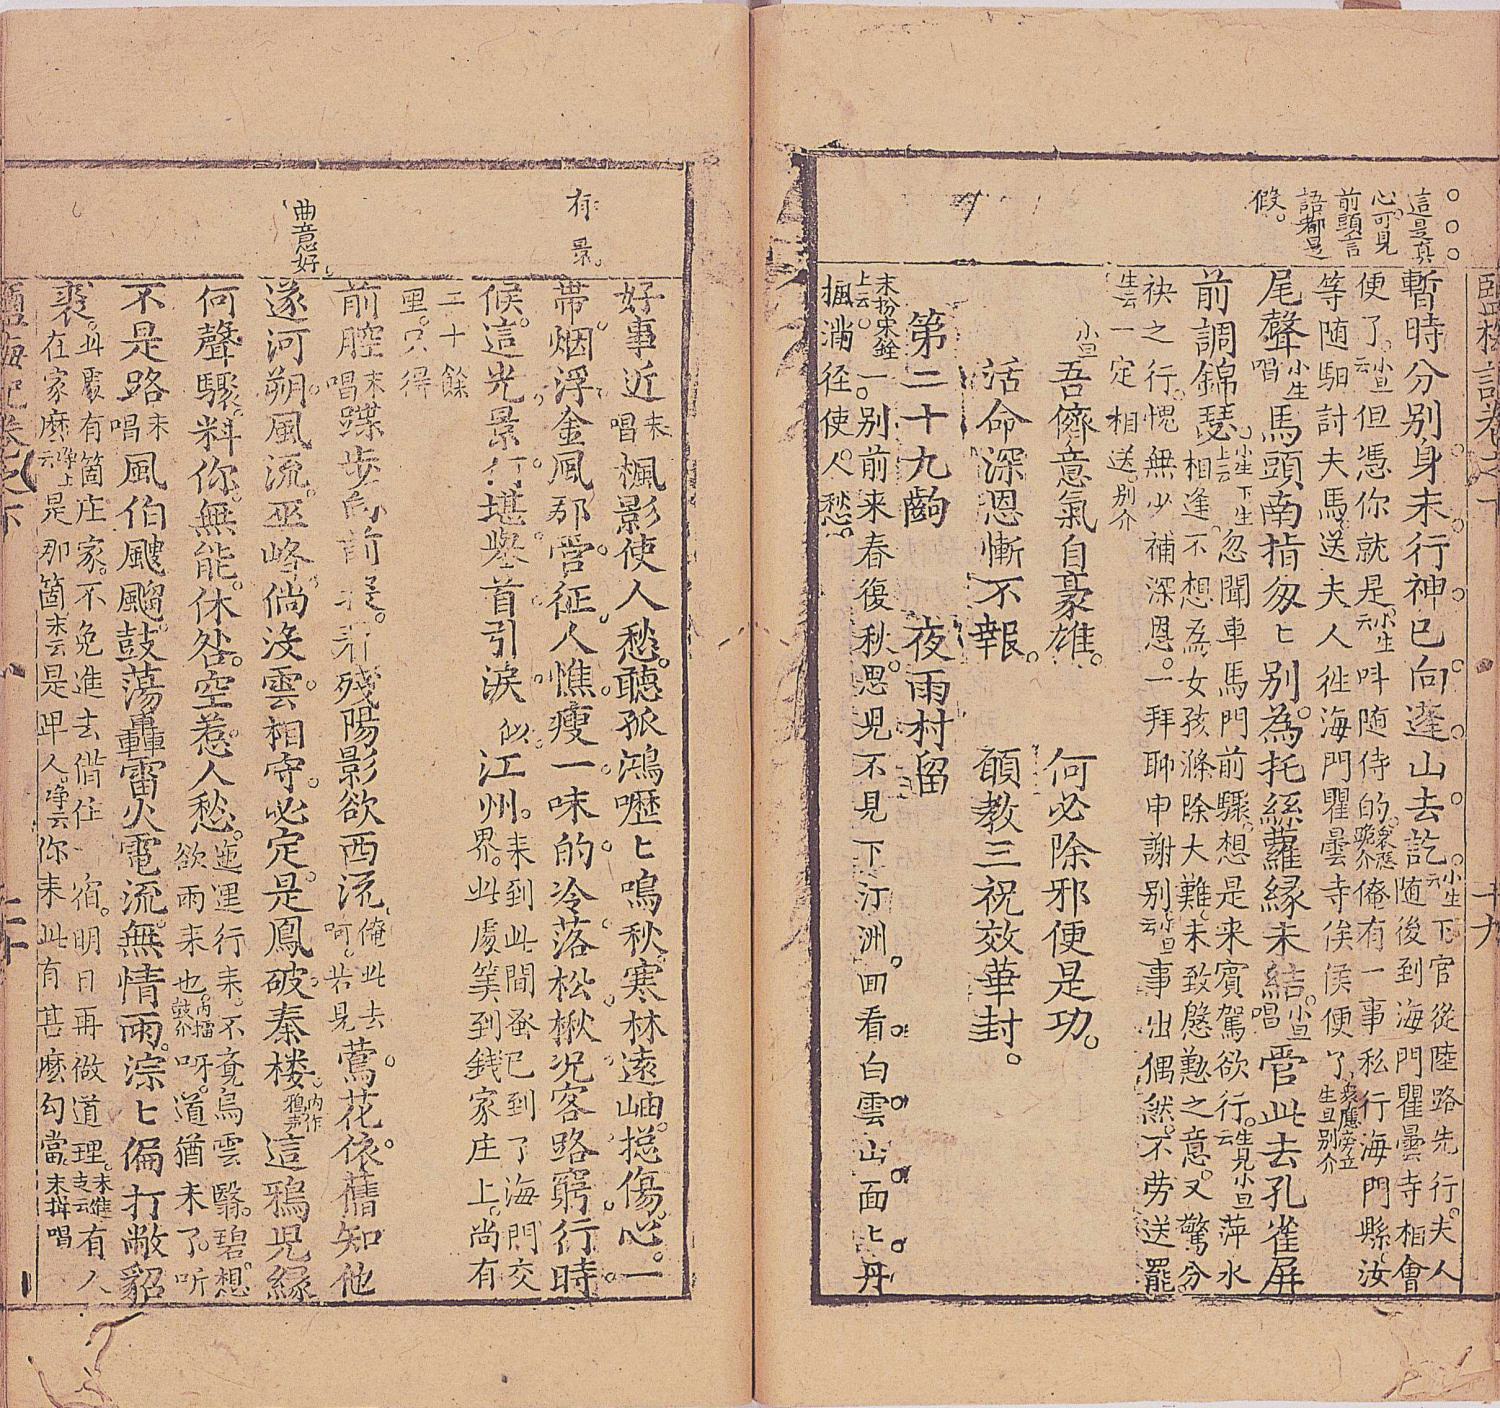 鹽梅記卷之下
十九
這是真
心可見
前頭言
語都是
假
暫時分別身未行神已向蓬山去訖小生云下官從陸路先行夫人
隨後到海門瞿曇寺相會
便了小旦云但憑你就是小生云呌隨侍的衆應俺有一事私行海門縣汝
等隨駟討夫馬送夫人徃海門瞿曇寺俟侯便了衆應旁立生旦別介
尾聲小生唱馬頭南指匆匕別為托絲蘿緣未結小旦唱管此去孔雀屏
前調錦瑟小生下生上云忽聞車馬門前驟想是来賓駕欲行生見小旦云萍水
相逢不想為女孩滌除大難未致慇懃之意又驚分
袂之行愧無少補深恩一拜聊申謝別小旦云事出偶然不劳送罷
生云一定相送別介
小旦吾儕意氣自豪雄　何必除邪便是功
活命深恩慚不報　願教三祝效華封
第二十九齣　夜雨村留
末扮宋銓上云一別前来春復秋思児不見下汀洲囬看白雲山面匕丹
楓滿径使人愁
有景
曲意好
好事近末唱楓影使人愁聽孤鴻嚦匕鳴秋寒林遠岫捴傷心一
帶烟浮金風那管征人憔瘦一味的冷落松楸况客路窮行時
候這光景行堪舉首引淚似江州末到此間蚤已到了海門交
界此處筭到錢家庄上尚有
二十餘
里只得
前腔末唱蹀步向前投看殘陽影欲西流俺此去呵若見鶯花依舊知他
遂河朔風流巫峰倘沒雲相守必定是鳳破秦楼内作鴉声這鴉児緣
何聲驟料你無能休咎空惹人愁迤逗行来不竟烏雲翳碧想
欲雨来也内擂鼓介呀道猶未了听
不是路末唱風伯颼飀鼓蕩轟雷火電流無情雨淙匕偏打敝貂
裘此處有箇庄家不免進去借住一宿明日再做道理末進去云有人
在家麽净上云是那箇末云是呷人净云你来此有甚麽勾當末拱唱
鹽梅記卷之下
二十